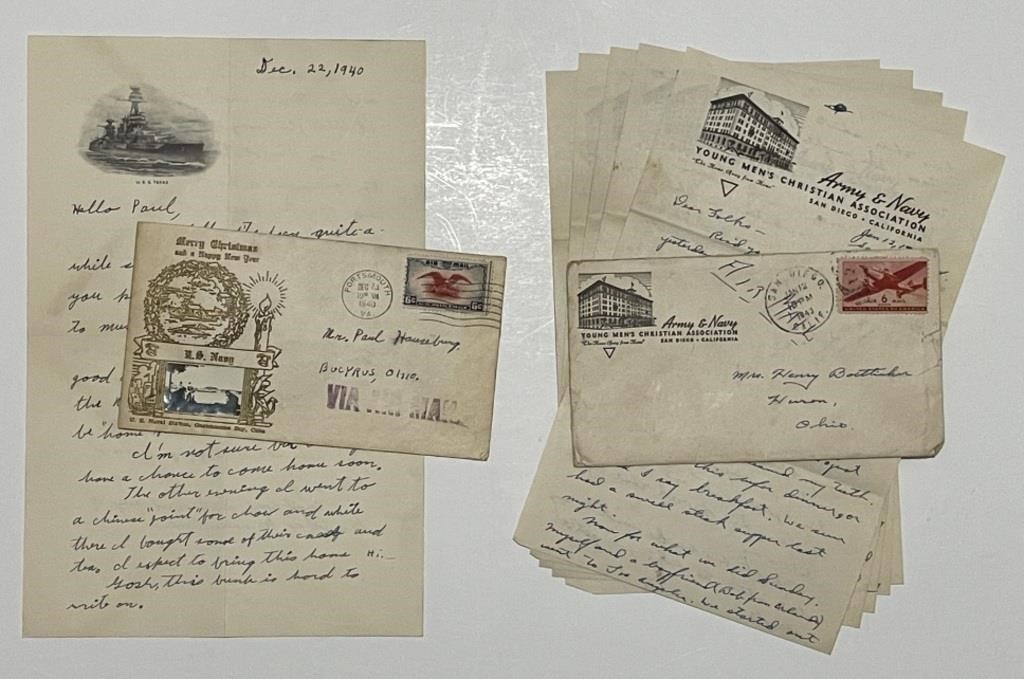 Dec. 22, 1940
U.S.S. TEXAS
Hello Paul,
quite a
while s
you
To mu
good
the
be "home
I'm not sure
have a chance to come home soon.
The other evening I went to
a chinese "joint" for chow and while
there I bought some of their candy and
tea. I expect to bring this home Hi.—
Gosh, this bunk is hard to
write on.
Merry Christmas
and a Happy New Year
U.S. Navy
U. S. Naval Station, Guantanamo Bay, Cuba
PORTSMOUTH
DEC 23
1940
VA.
AIR MAIL
6¢ 6¢
Mr. Paul
Bucyrus, Ohio.
VIA AIR MAIL
YOUNG MEN'S CHRISTIAN ASSOCIATION
"The Home Away from Home"
Army & Navy
SAN DIEGO • CALIFORNIA
Jan 12,
Dear Folks—
yesterday
Army & Navy
YOUNG MEN'S CHRISTIAN ASSOCIATION
"The Home Away from Home"
SAN DIEGO • CALIFORNIA
SAN DIEGO,
JAN 12
PM
1943
CALIF.
6
AIR MAIL
UNITED STATES OF AMERICA
Mrs. Henry
Huron,
Ohio.
this after dinner or
I say breakfast. We
had a small steak supper last
night.
Now for what we did Sunday.
myself and a boyfriend (Bob from
went to Los Angeles. We started out